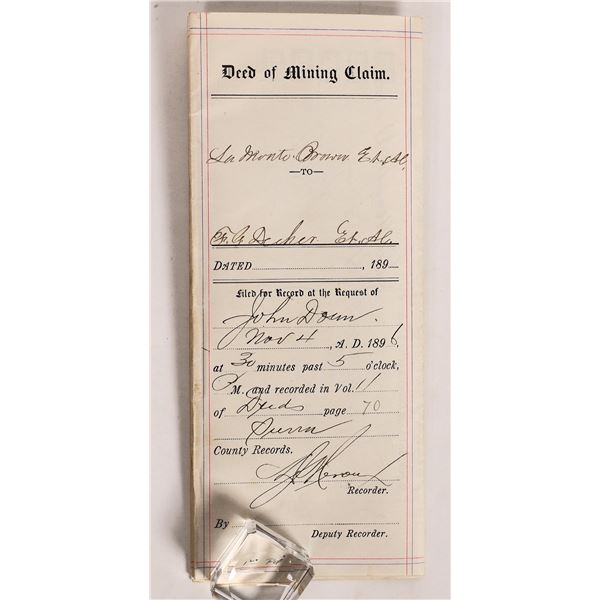 Deed of Mining Claim.
La Monte Brown Et. Al.
—TO—
F. G. Decker Et. Al.
DATED , 189
Filed for Record at the Request of
John Doun.
Nov 4 , A. D. 1896,
at 30 minutes past 5 o'clock,
P M. and recorded in Vol. 11
of Deeds page 70
Sierra
County Records.
Recorder.
By
Deputy Recorder.